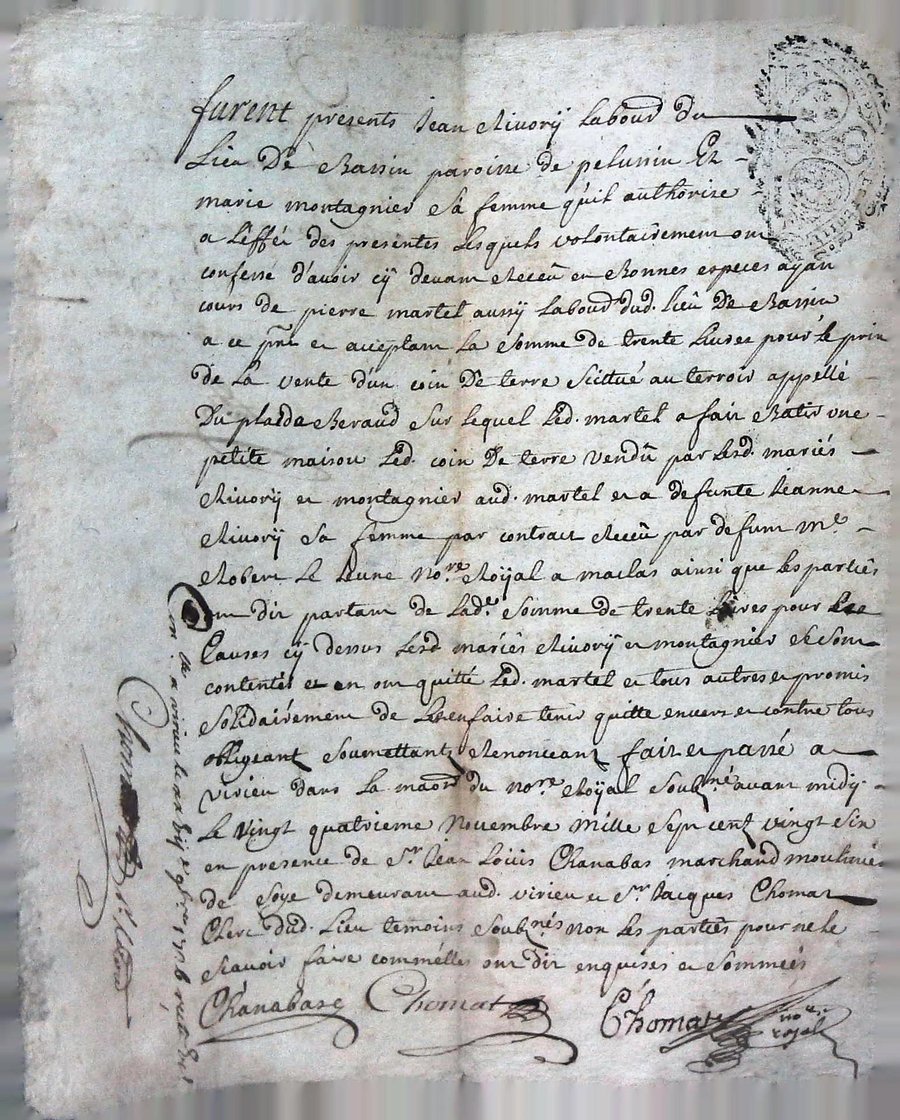 furent presents Jean Rivorÿ Labourd du
Lieu De Bassin paroisse de pelussin Et
marie montagnier sa femme qu'il authorise
a L'effét des presentes Lesquels volontairement ont
confessé d'avoir cÿ devant Receû en Bonnes especes ayant
cours de pierre martel aussÿ Labourd dud. lieû De Bassin
a ce pnt et acceptant La somme de trente Livres pour le prix
De La vente d'un coin De terre scittué au terroir appellé
Du Beraud sur Lequel Led. martel a fait Batir une
petite maison Led. coin De terre vendû par Lesd. mariés
Rivorÿ et montagnier aud. martel et a defunte Jeanne
Rivorÿ sa femme par contract Receû par defunt me
Robert Le Jeune nore. Roÿal a maclas ainsi que les partiés
ont dit partant de Lade. somme de trente Livres pour Les
Causes cÿ dessus Lesd mariés Rivorÿ et montagnier se sont
contentés et en ont quitté Led. martel et tous autres et promis
solidairement de Len faire tenir quitte envers et contre tous
obligeant soumettant Renonceant fait et passé a
virieu dans La maon du nore. Roÿal soubné avant midÿ
Le vingt quatrieme novembre mille sept cent vingt six
en presence de Sr. Jean Loüis Chanabas marchand moulinier
de soye demeurant aud. virieu et Sr. Jacques Chomat
Clerc dud. Lieu temoins soubnés non les parties pour ne le
scavoir faire commélles ont dit enquises et sommeés
Chanabas Chomat Chomat nore. royal
con. lé a virieu le 9bre 1726 recu